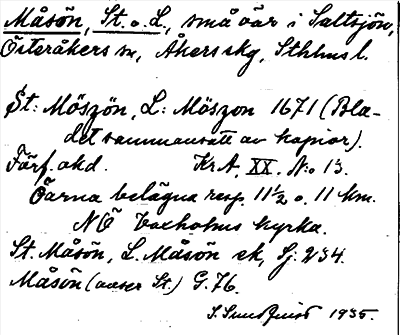 Måsön, St. o. L., små öar i Saltsjön,
Österåkers sn, Åkers skg, Sthlms l.
St: Möszön, L: Möszon 1671 (Bla-
det sammansatt av kopior).
Förf. okd. KrA, XX. N:o 13.
Öarna belägna resp. 11½ o. 11 km.
NÖ Vaxholms kyrka.
St. Måsön, L. Måsön ek, Sj. 234.
Måsön (avser St.) G. 76.
S. Sundquist 1935.